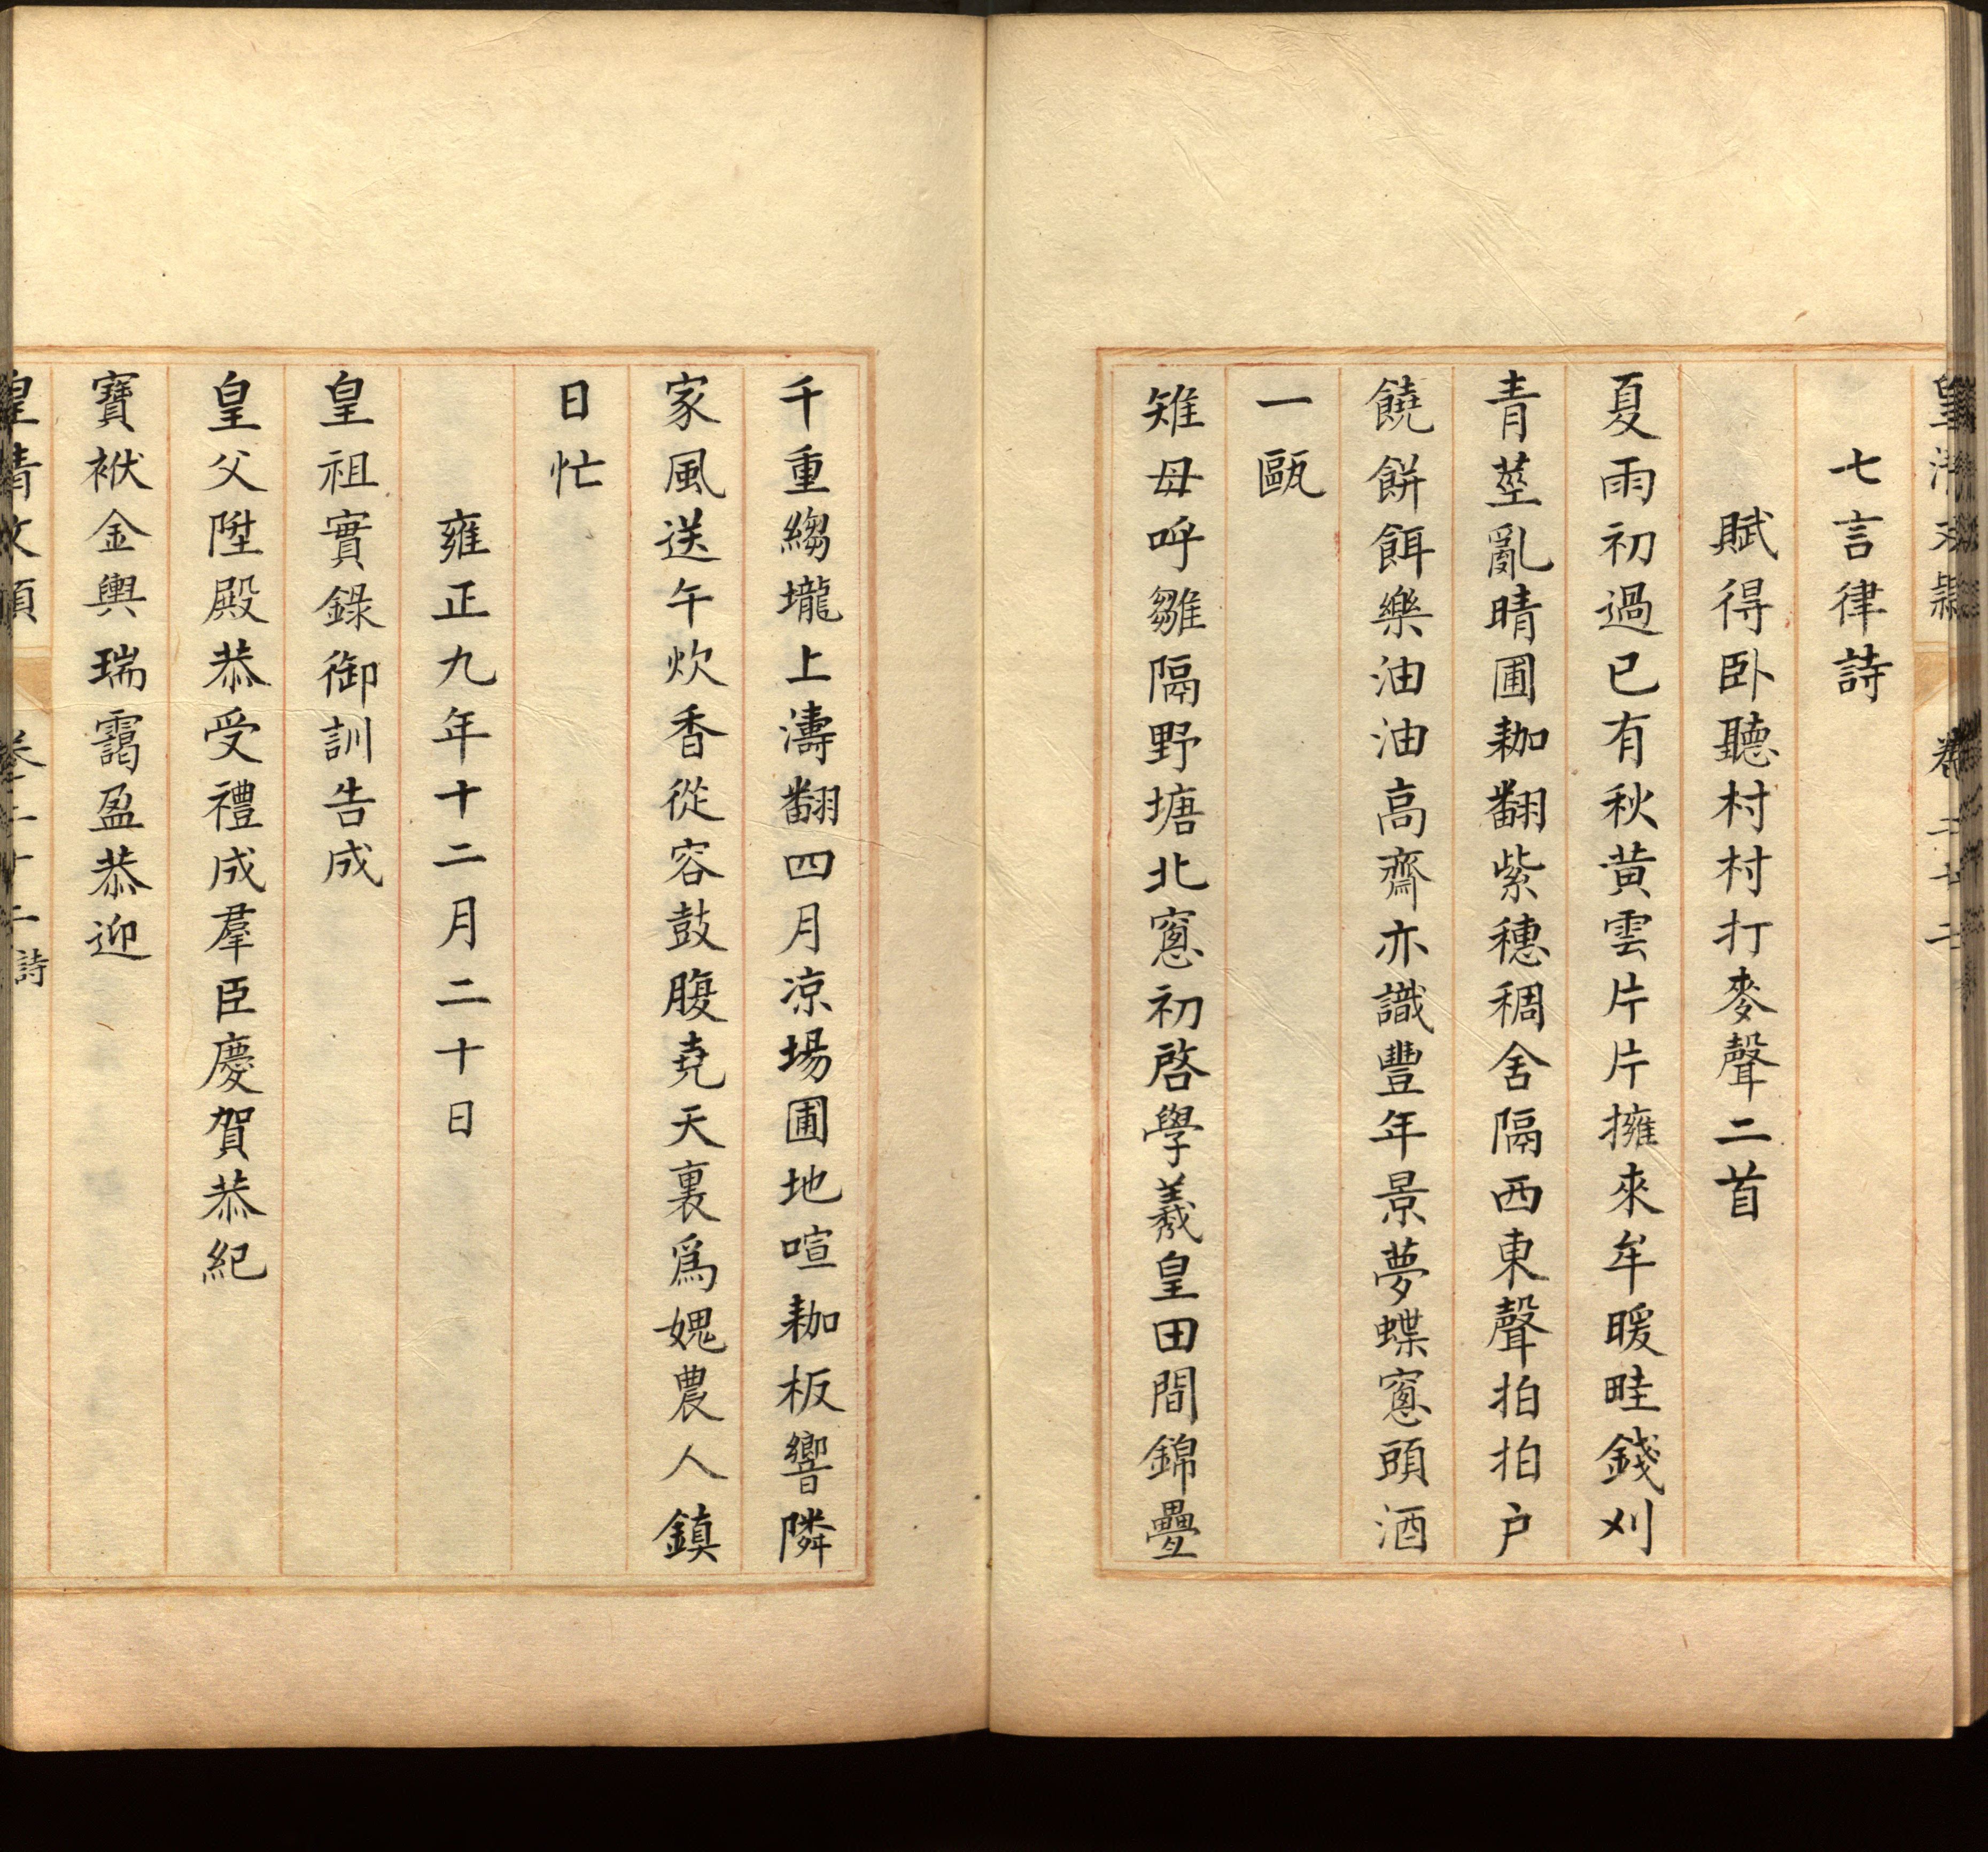 七言律詩
賦得卧聽村村打麥聲二首
夏雨初過已有秋黄雲片片擁來牟暖畦錢刈
青莖亂晴圃耞翻紫穗稠舍隔西東聲拍拍户
饒餅餌樂油油高齋亦識豐年景夢蝶窻頭酒
一甌
雉母呼雛隔野塘北窻初啓學羲皇田間錦疊
千重縐壠上濤翻四月凉場圃地喧耞板響隣
家風送午炊香從容鼓腹堯天裏爲媿農人鎮
日忙
雍正九年十二月二十日
皇祖實錄御訓告成
皇父陞殿恭受禮成羣臣慶賀恭紀
寶袱金輿瑞靄盈恭迎
皇清文穎 卷二十二 詩